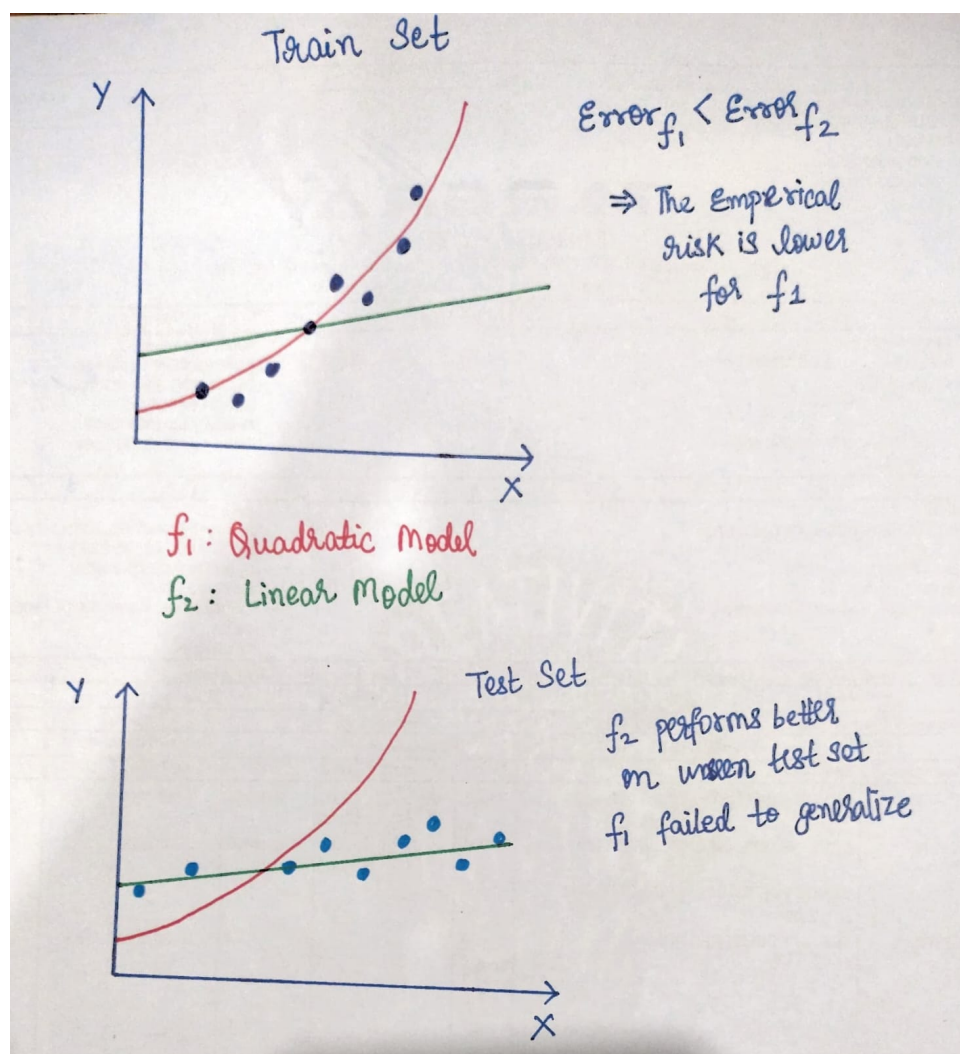 Train Set
Y
Error f1 < Error f2
⇒ The Emperical
risk is lower
for f1
X
f1 : Quadratic Model
f2 : Linear Model
Y
Test Set
f2 performs better
on unseen test set
f1 failed to generalize
X